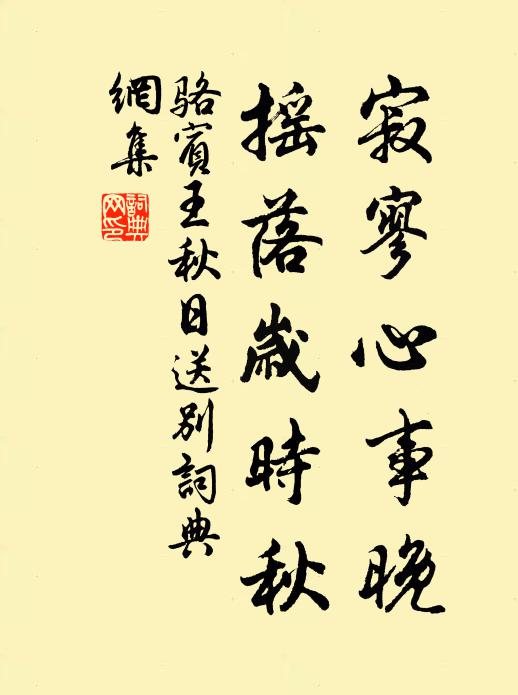 寂寥心事晚
摇落歲時秋
骆賓王秋日送别詞典
網集
詞典网印